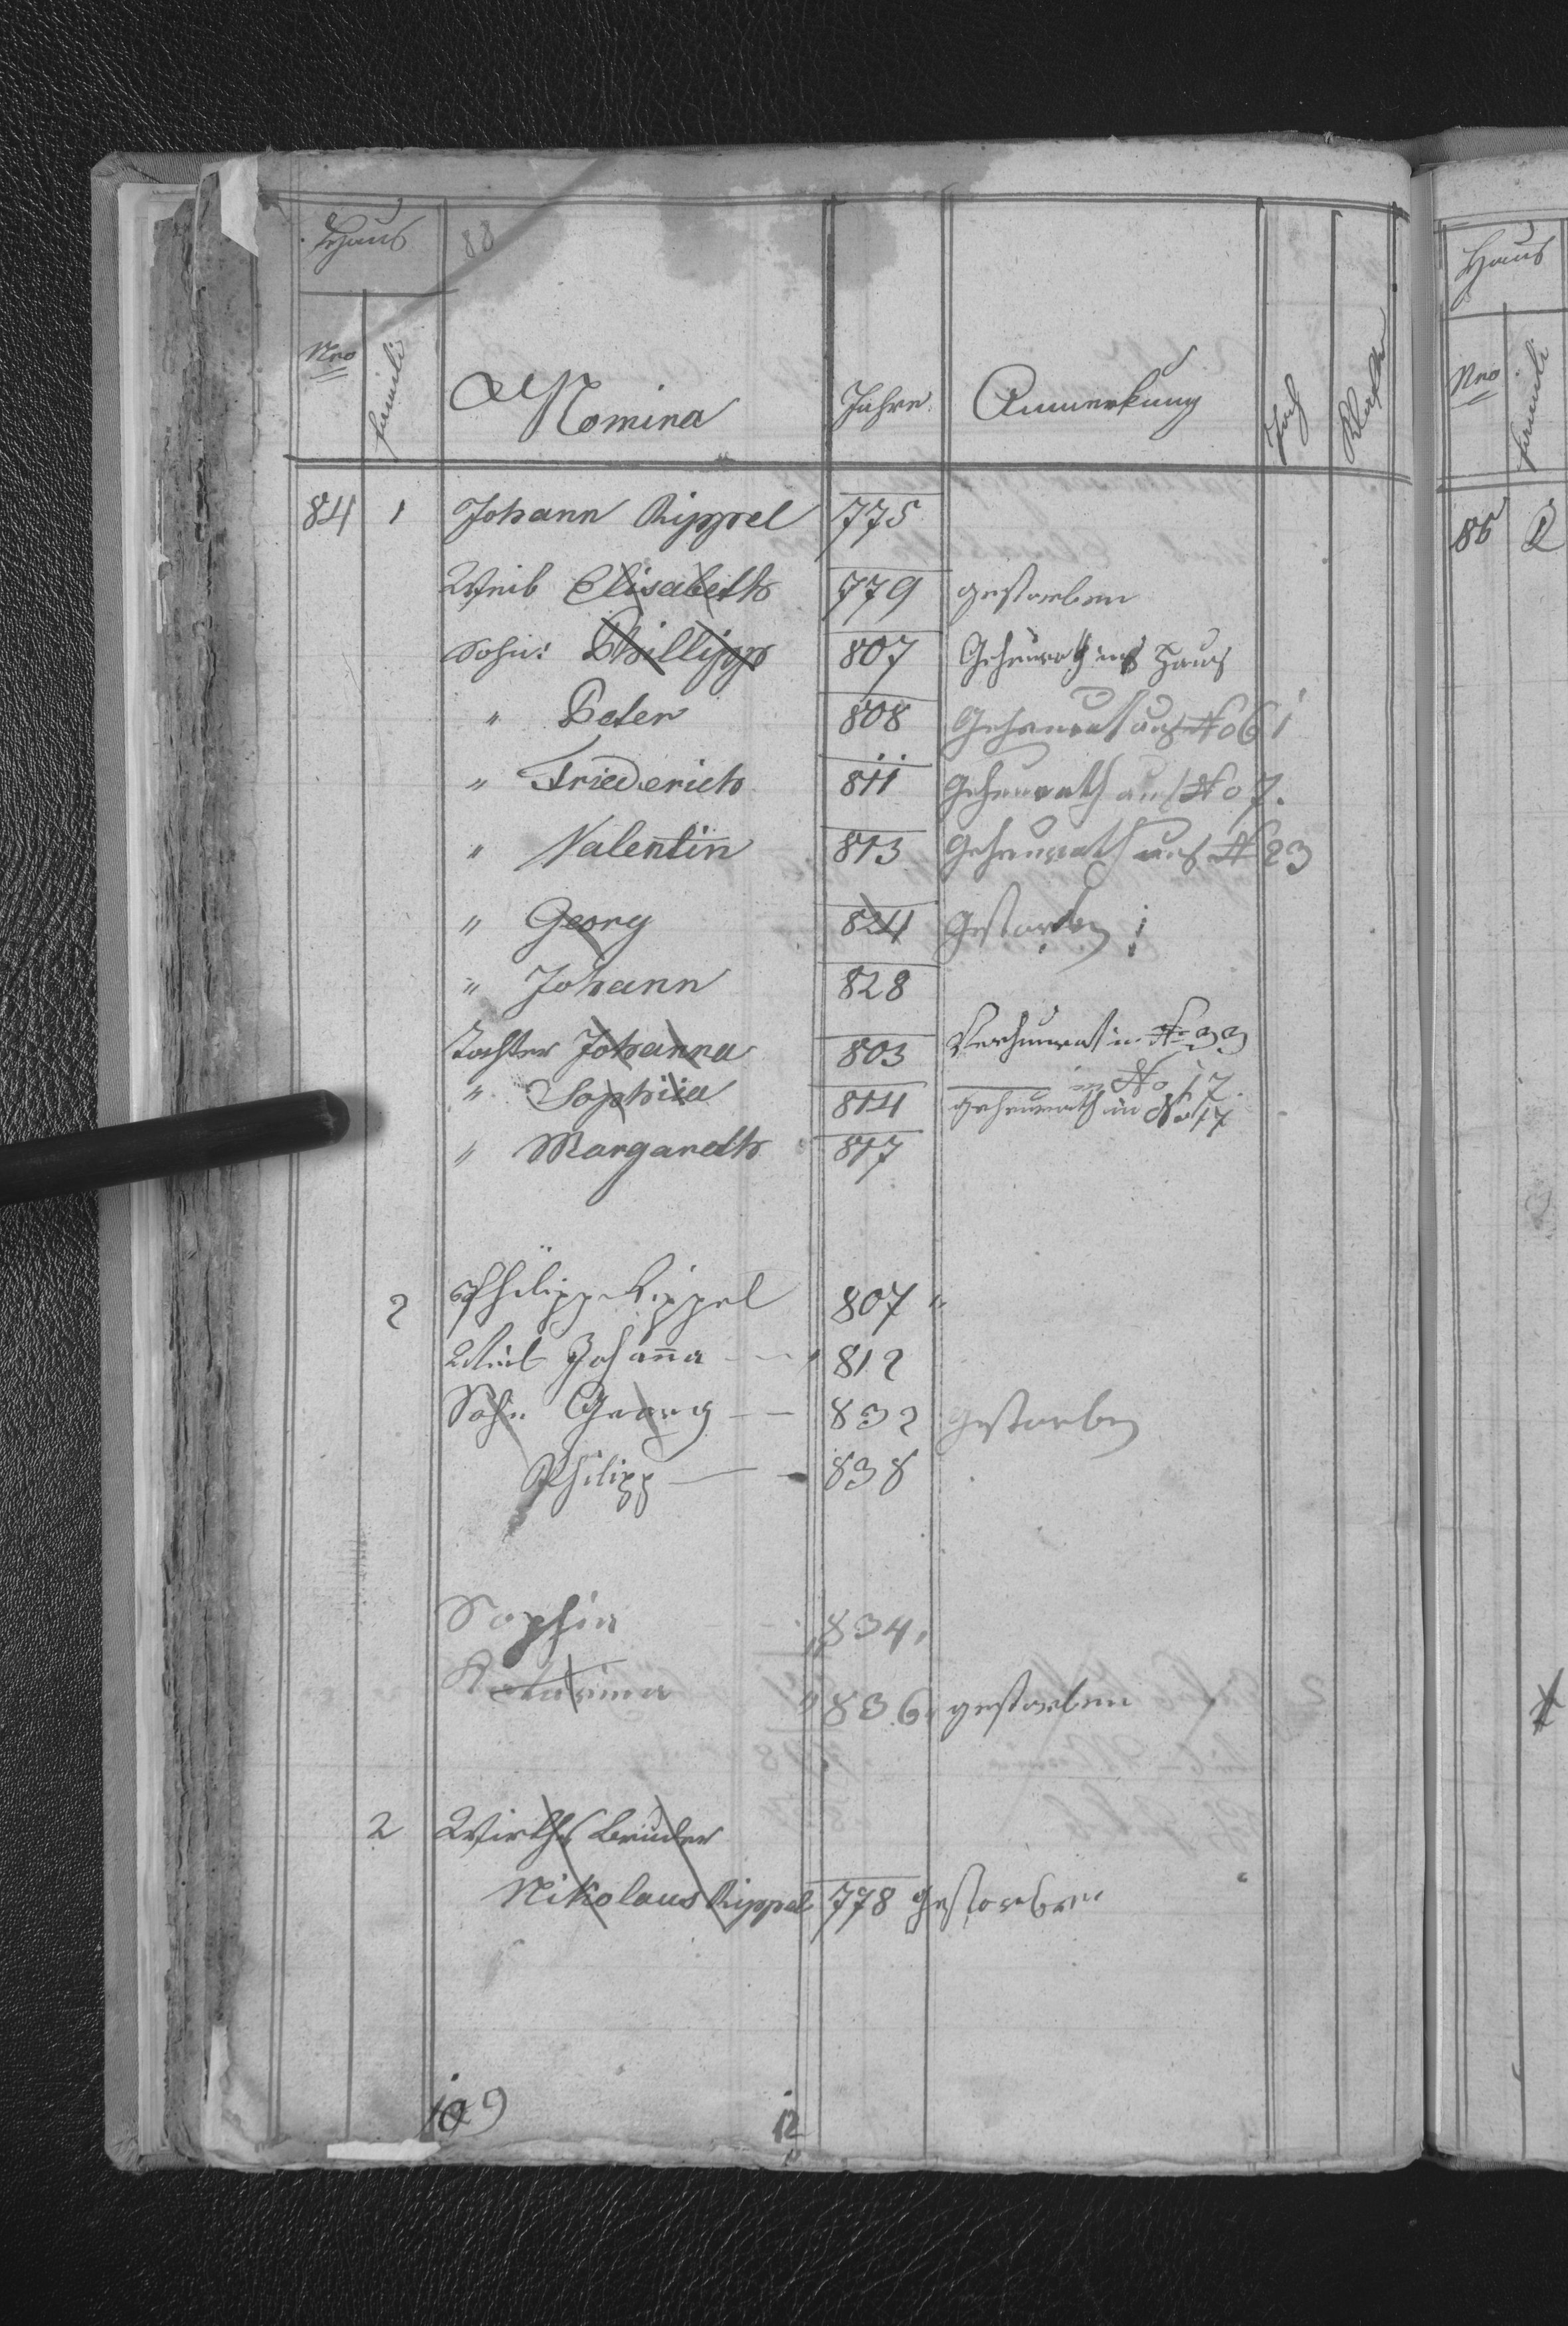 Haus 88
Nro familie Nomina Jahre. Anmerkung Joch Klafter
84 1 Johann Rippel 775
Weib Elisabeth 779 gestorben
Sohn: Phillipp 807 Geheurath ins Haus
" Peter 808 Geheurat auf No 61
" Friederich 811 Geheurath auf No 7.
" Valentin 813 Geheurath auf N 23
" Georg 824 Gestorben
" Johann 828
Tochter Johanna 803 Verheurat in No 33
" Sophia 814 in No 17
" Margareth 817 geheurath in No 17
2 Philipp Rippel 807 "
Weib Johanna 812
Sohn Georg 832 gestorben
Philipp 838
Sophia 834
Katarina 836 gestorben
2 Wirths Bruder
Nikolaus Rippel 778 gestorben
109 12
Haus
Nro familie
86 2